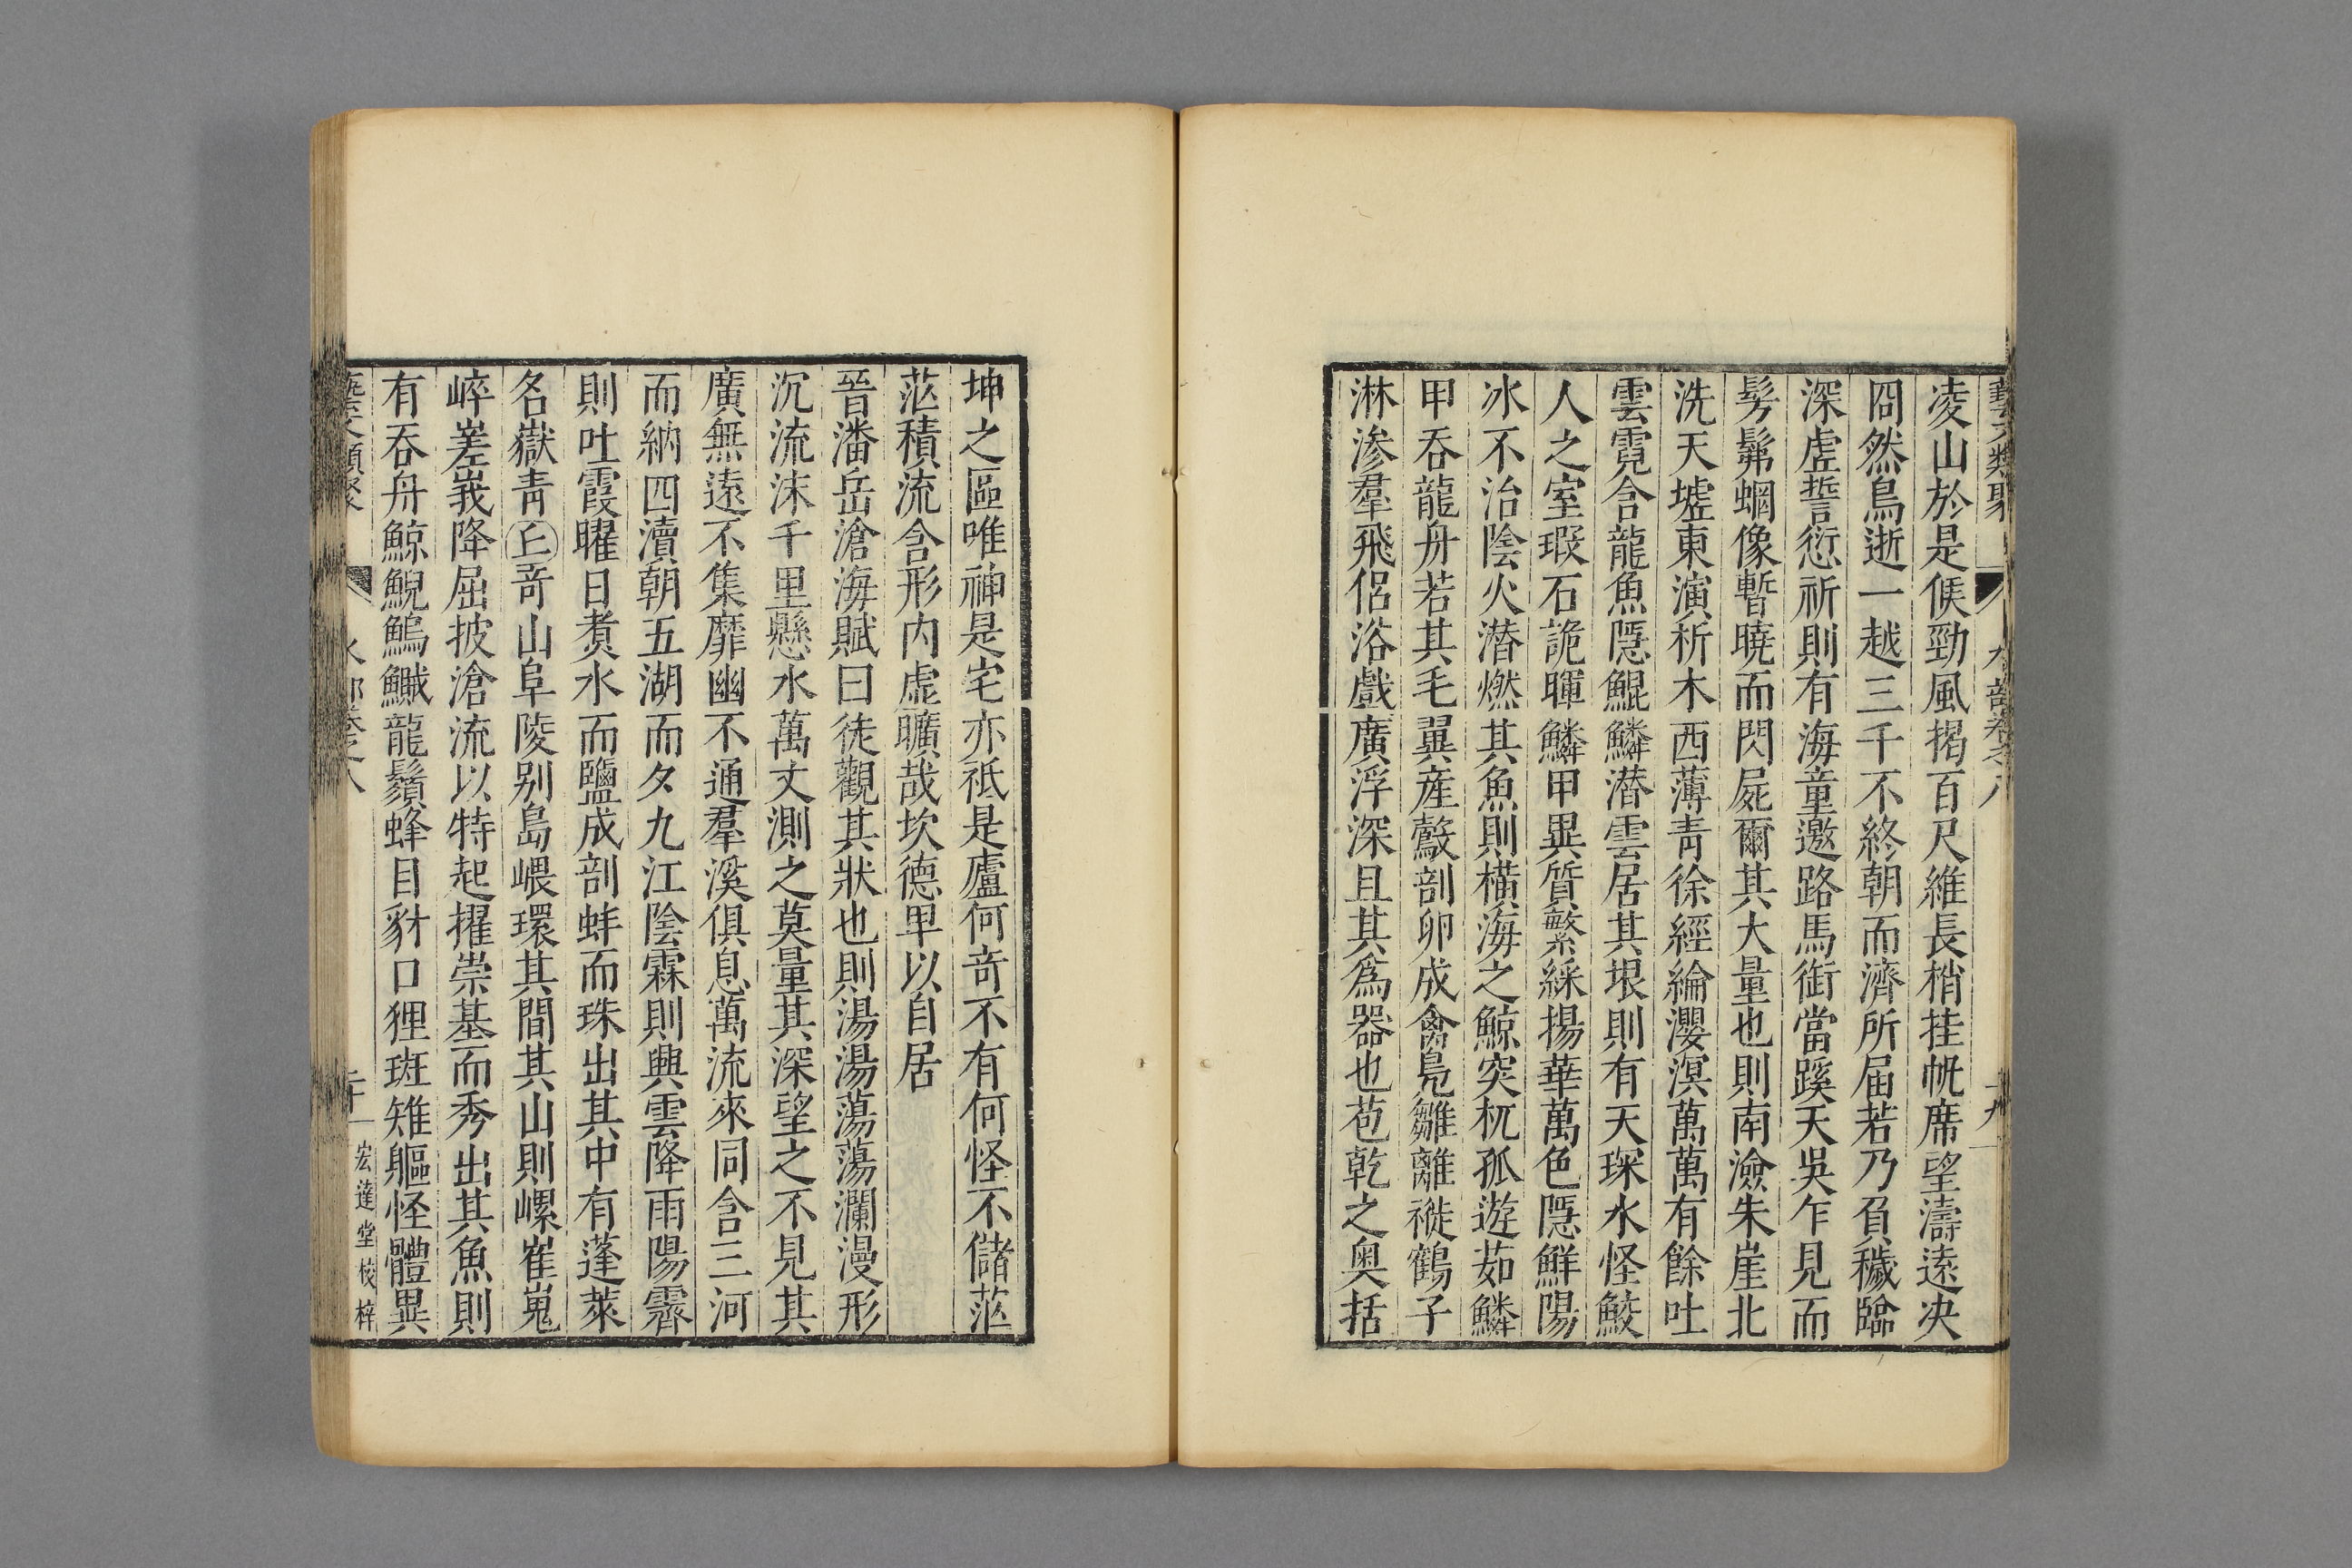 藝文類聚 水部卷之八 十九
凌山於是候勁風揭百尺維長梢挂帆席望濤遠决
冏然鳥逝一越三千不終朝而濟所届若乃負穢臨
深虛誓愆祈則有海童邀路馬銜當蹊天吳乍見而
髣髴蜩像暫曉而閃屍爾其大量也則南澰朱崖北
洗天墟東演析木西薄青徐經綸瀴溟萬萬有餘吐
雲霓含龍魚隱鯤鱗潜雲居其垠則有天琛水怪鮫
人之室瑕石詭暉鱗甲異質繁綵揚華萬色隱鮮陽
冰不冶陰火潜燃其魚則横海之鯨突杌孤遊茹鱗
甲吞龍舟若其毛翼產鷇剖卵成禽鳧雛離褷鶴子
淋渗羣飛侣浴戲廣浮深且其爲器也苞乾之奥括
坤之區唯神是宅亦祗是廬何竒不有何怪不儲茫
茫積流含形内虛曠哉坎德卑以自居
晉潘岳滄海賦曰徒觀其狀也則湯湯蕩蕩瀾漫形
沉流沫千里懸水萬丈測之莫量其深望之不見其
廣無遠不集靡幽不通羣溪俱息萬流來同含三河
而納四瀆朝五湖而夕九江陰霖則興雲降雨陽霽
則吐霞曜日煑水而鹽成剖蚌而珠出其中有蓬萊
名嶽青丘竒山阜陵别島嵔環其間其山則嵺崔嵬
崪嵳峩降屈披滄流以特起擢崇基而秀出其魚則
有吞舟鯨鯢鰞鱡龍鬚蜂目豺口狸斑雉軀怪體異
藝文類聚 水部卷之八 二十 宏達堂校梓